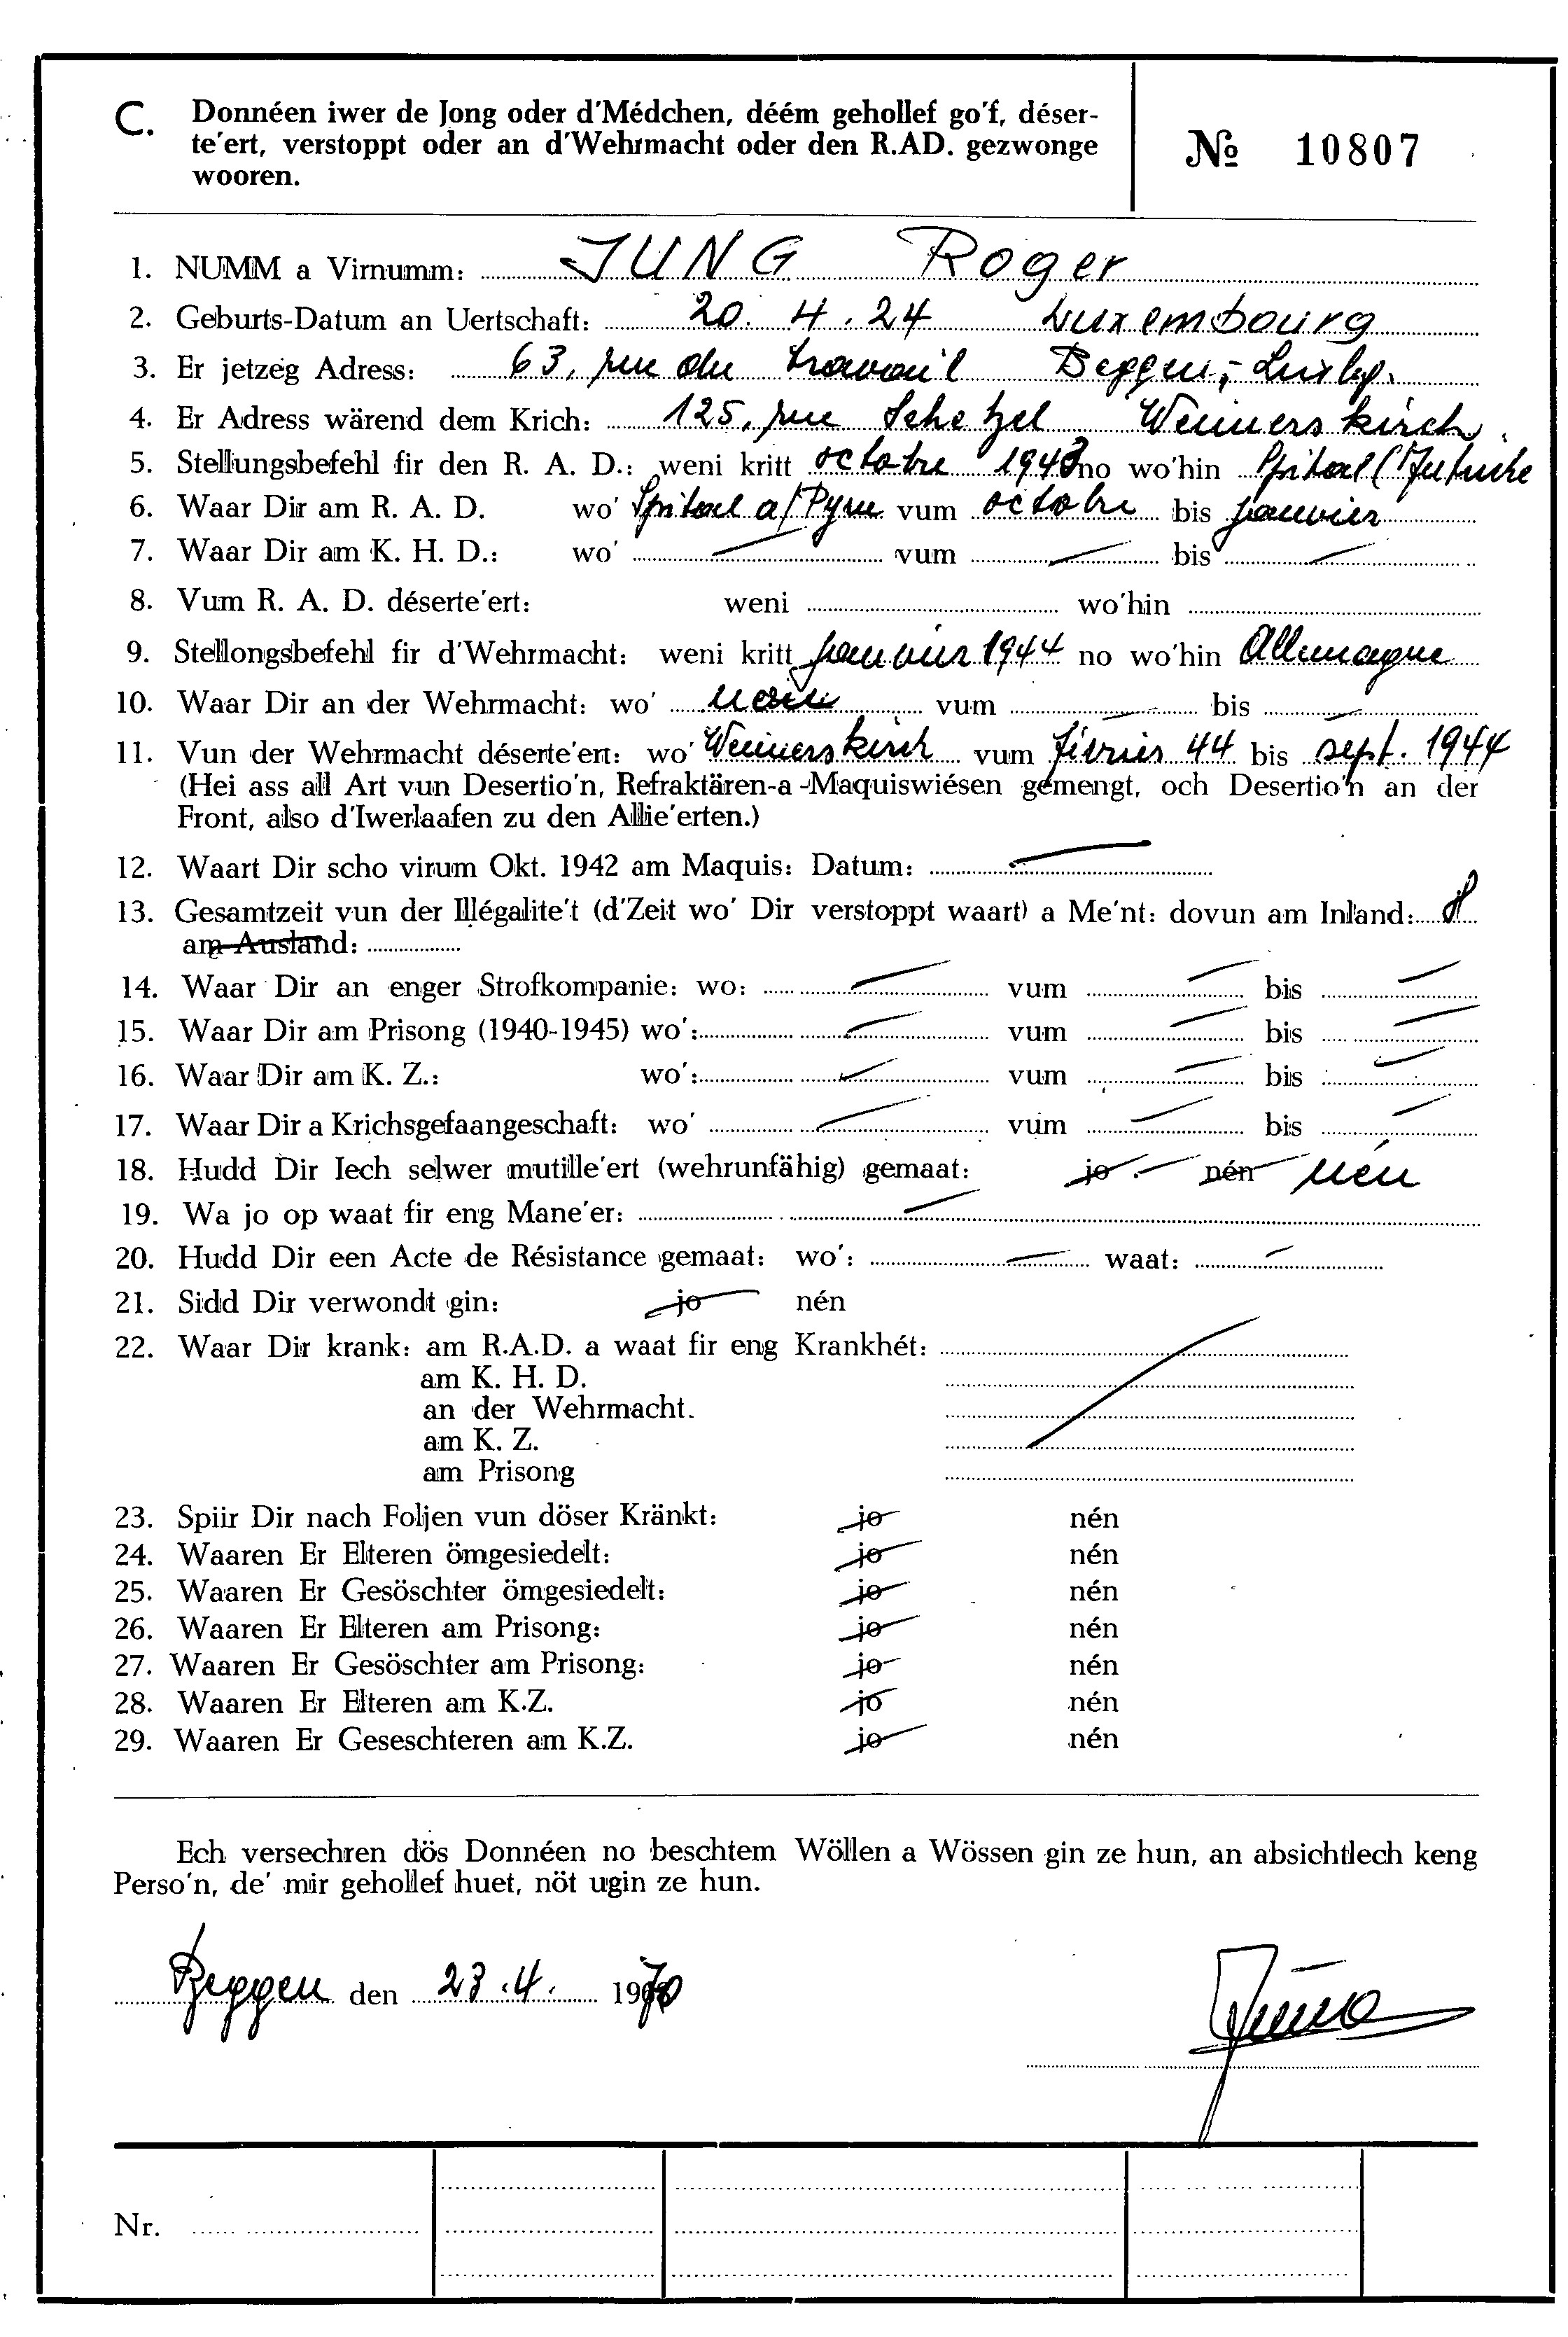 C. Donnéen iwer de Jong oder d'Médchen, déém gehollef go'f, déser-
te'ert, verstoppt oder an d'Wehrmacht oder den R.AD. gezwonge
wooren.
№ 10807
1. NUMM a Virnumm: JUNG Roger
2. Geburts-Datum an Uertschaft: 20. 4. 24 Luxembourg
3. Er jetzeg Adress: 63, rue du travail Beggen,- Luxbg.
4. Er Adress wärend dem Krich: 125, rue Schetzel Weimerskirch
5. Stellungsbefehl fir den R. A. D.: weni kritt octobre 1943 no wo'hin Spital (Autriche
6. Waar Dir am R. A. D. wo' Spital a/Pyrn vum octobre bis janvier
7. Waar Dir am K. H. D.: wo' — vum — bis —
8. Vum R. A. D. déserte'ert: weni wo'hin
9. Stellongsbefehl fir d'Wehrmacht: weni kritt janvier 1944 no wo'hin Allemagne
10. Waar Dir an der Wehrmacht: wo' vum — bis —
11. Vun der Wehrmacht déserte'ert: wo' Weimerskirch vum février 44 bis sept. 1944
(Hei ass all Art vun Desertio'n, Refraktären-a -Maquiswiésen gemengt, och Desertio'n an der
Front, also d'Iwerlaafen zu den Allie'erten.)
12. Waart Dir scho virum Okt. 1942 am Maquis: Datum: —
13. Gesamtzeit vun der Illégalite't (d'Zeit wo' Dir verstoppt waart) a Me'nt: dovun am Inland: 8
am Ausland:
14. Waar Dir an enger Strofkompanie: wo: — vum — bis —
15. Waar Dir am Prisong (1940-1945) wo': — vum — bis —
16. Waar Dir am K. Z.: wo': — vum — bis —
17. Waar Dir a Krichsgefaangeschaft: wo' — vum — bis —
18. Hudd Dir Iech selwer mutille'ert (wehrunfähig) gemaat: jo - nén nén
19. Wa jo op waat fir eng Mane'er: —
20. Hudd Dir een Acte de Résistance gemaat: wo': — waat: —
21. Sidd Dir verwondt gin: jo nén
22. Waar Dir krank: am R.A.D. a waat fir eng Krankhét:
am K. H. D.
an der Wehrmacht.
am K. Z.
am Prisong
23. Spiir Dir nach Foljen vun döser Kränkt: jo nén
24. Waaren Er Elteren ömgesiedelt: jo nén
25. Waaren Er Gesöschter ömgesiedelt: jo nén
26. Waaren Er Elteren am Prisong: jo nén
27. Waaren Er Gesöschter am Prisong: jo nén
28. Waaren Er Elteren am K.Z. jo nén
29. Waaren Er Geseschteren am K.Z. jo nén
Ech versechren dös Donnéen no beschtem Wöllen a Wössen gin ze hun, an absichtlech keng
Perso'n, de' mir gehollef huet, nöt ugin ze hun.
Beggen den 23.4. 1970
Jung
Nr.